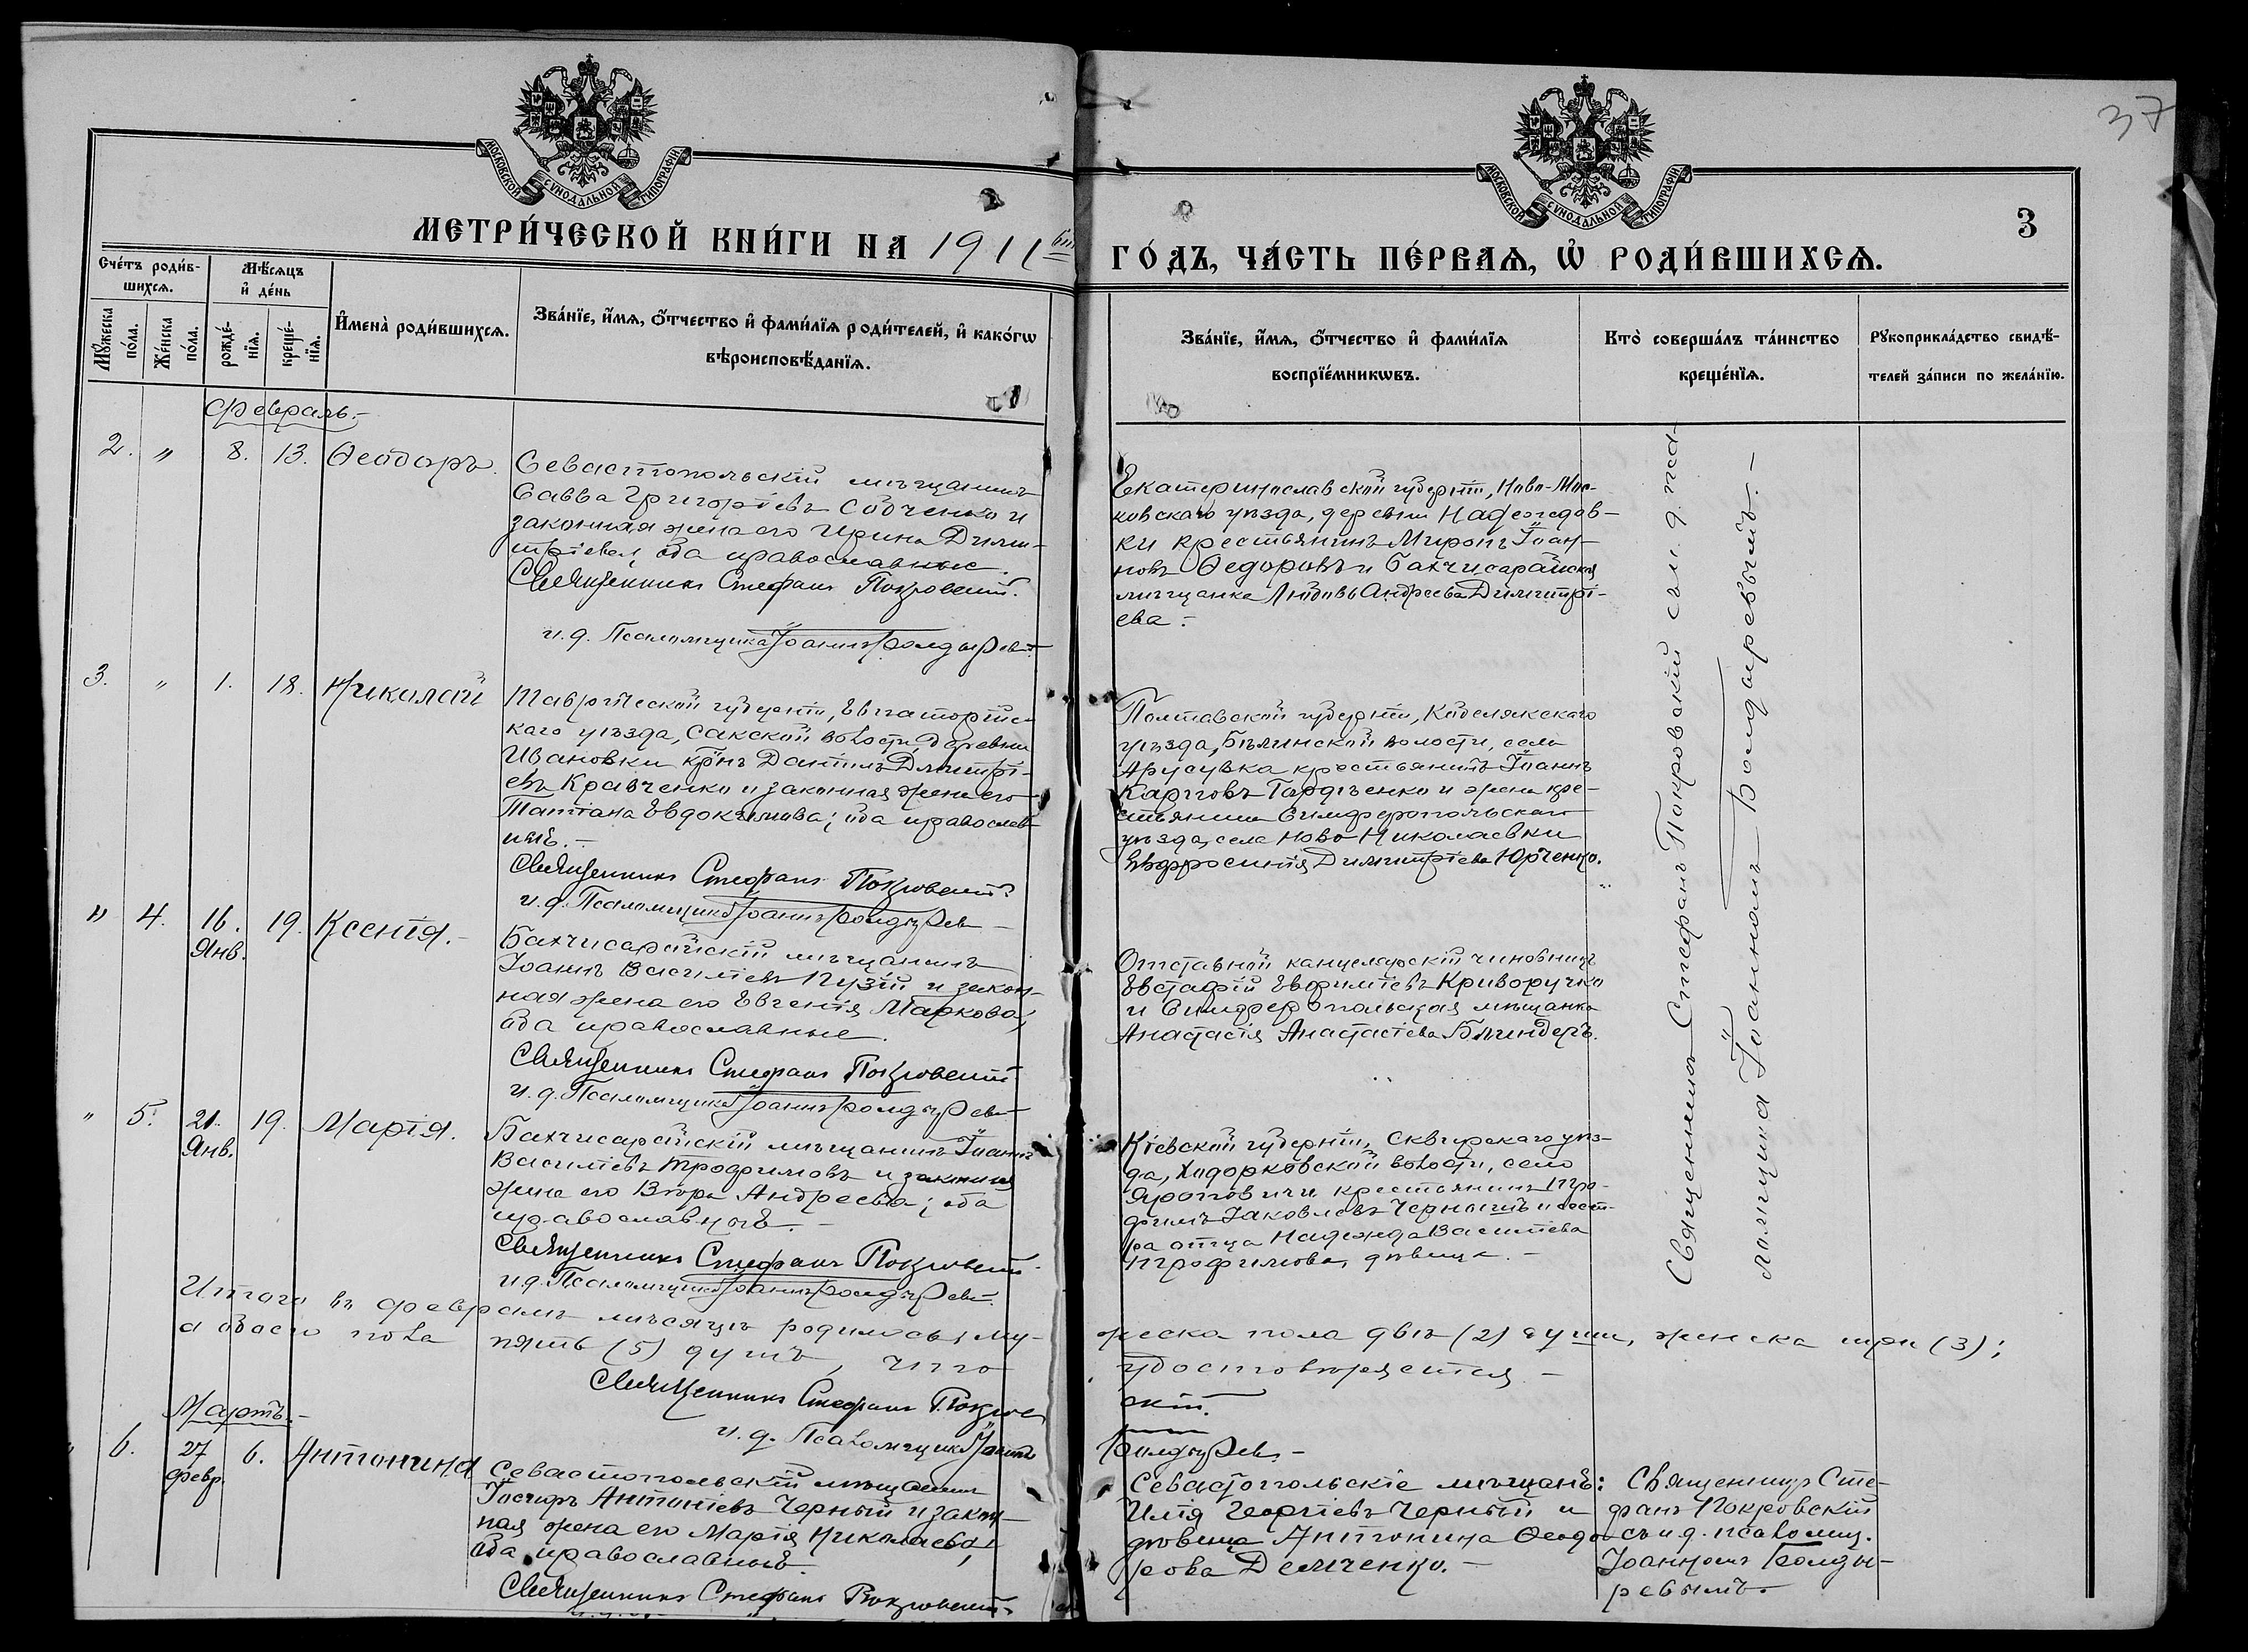 37
МОСКОВСКОЙ СУНОДАЛЬНОЙ ТИПОГРАФІИ
МОСКОВСКОЙ СУНОДАЛЬНОЙ ТИПОГРАФІИ
3
МЕТРИ́ЧЕСКОЙ КНИ́ГИ НА 1911
ГО́ДЪ, ЧА́СТЬ ПЕ́РВАѦ, Ѡ҆ РОДИ́ВШИХСѦ.
Сче́тъ роди́в-
шихсѧ.
Мѣ́сѧцъ
и҆ де́нь
Мꙋ́жеска
по́ла.
Же́нска
по́ла.
рожде́-
нїѧ.
креще́-
нїѧ.
И҆мена̀ роди́вшихсѧ.
Зва́нїе, и҆́мѧ, ѻ҆́тчество и҆ фами́лїѧ роди́телей, и҆ како́гѡ
вѣроисповѣ́данїѧ.
Зва́нїе, и҆́мѧ, ѻ҆́тчество и҆ фами́лїѧ
воспрїе́мникѡвъ.
Кто̀ соверша́лъ та́инство
креще́нїѧ.
Рꙋкоприкла́дство свидѣ́-
телей за́писи по жела́нїю.
Февраль.-
2. " 8. 13. Ѳеодоръ.
Севастопольскій мѣщанинъ
Савва Григоріевъ Собченко и
законная жена его Ирина Дими-
тріева, оба православные.
Священникъ Стефанъ Покровскій.
и. д. Псаломщика Іоаннъ Болдыревъ.
Екатеринославской губерніи, Ново-Мос-
ковскаго уѣзда, деревни Надеждов-
ки крестьянинъ Миронъ Іоан-
новъ Ѳедоровъ и Бахчисарайская
мѣщанка Любовь Андреева Димитрі-
ева.-
3. " 1. 18. Николай
Таврической губерніи, Евпаторійс-
каго уѣзда, Сакской волости, деревни
Ивановки кр̃нъ Даніилъ Димитрі-
евъ Кравченко и законная жена его
Татіана Евдокимова; оба православ-
ные.-
Священникъ Стефанъ Покровскій
и. д. Псаломщика Іоаннъ Болдыревъ
Полтавской губерніи, Кобелякскаго
уѣзда, волости, села
крестьянинъ Іоаннъ
Карповъ Гордѣенко и жена кре-
стьянина Симферопольскаго
уѣзда, села Ново-Николаевки
Евфросинія Димитріева Юрченко.
" 4. 16. 19. Ксенія.-
Янв.
Бахчисарайскій мѣщанинъ
Іоаннъ Василіевъ Пузій и закон-
ная жена его Евгенія Маркова;
оба православные.
Священникъ Стефанъ Покровскій
и. д. Псаломщика Іоаннъ Болдыревъ
Отставной канцелярскій чиновникъ
Евстафій Евфиміевъ Криворучко
и Симферопольская мѣщанка
Анастасія Анастасіева Блиндеръ.
" 5. 21. 19. Марія.
Янв.
Бахчисарайскій мѣщанинъ Іоаннъ
Василіевъ Трофимовъ и законная
жена его Вѣра Андреева; оба
православные.-
Священникъ Стефанъ Покровскій
и. д. Псаломщика Іоаннъ Болдыревъ.
Кіевской губерніи, Сквирскаго уѣз-
да, Ходорковской волости, село
Яроповичи крестьянинъ Тро-
фимъ Іаковлевъ Черныш и сест-
ра отца Надежда Василіева
Трофимова, дѣвица.-
Священникъ Стефанъ Покровскій съ и. д. пса-
ломщика Іоанномъ Болдыревымъ.-
Итого въ февралѣ мѣсяцѣ родилось: му-
жеска пола двѣ (2) души, женска три (3);
а обоего пола пять (5) душъ, что
удостовѣряется.-
Священникъ Стефанъ Покров
скій.
и. д. Псаломщика Іоаннъ
Болдыревъ.-
Мартъ.-
6. 27 6. Антонина
февр.
Севастопольскій мѣщанинъ
Іосифъ Антоніевъ Черный и закон-
ная жена его Марія Николаева,
оба православные.
Священникъ Стефанъ Покровскій
Севастопольскіе мѣщане:
Илія Георгіевъ Черный и
дѣвица Антонина Ѳеодо-
рова Демченко.-
Священникъ Сте-
фанъ Покровскій
съ и. д. псаломщ.
Іоанномъ Болды-
ревымъ.